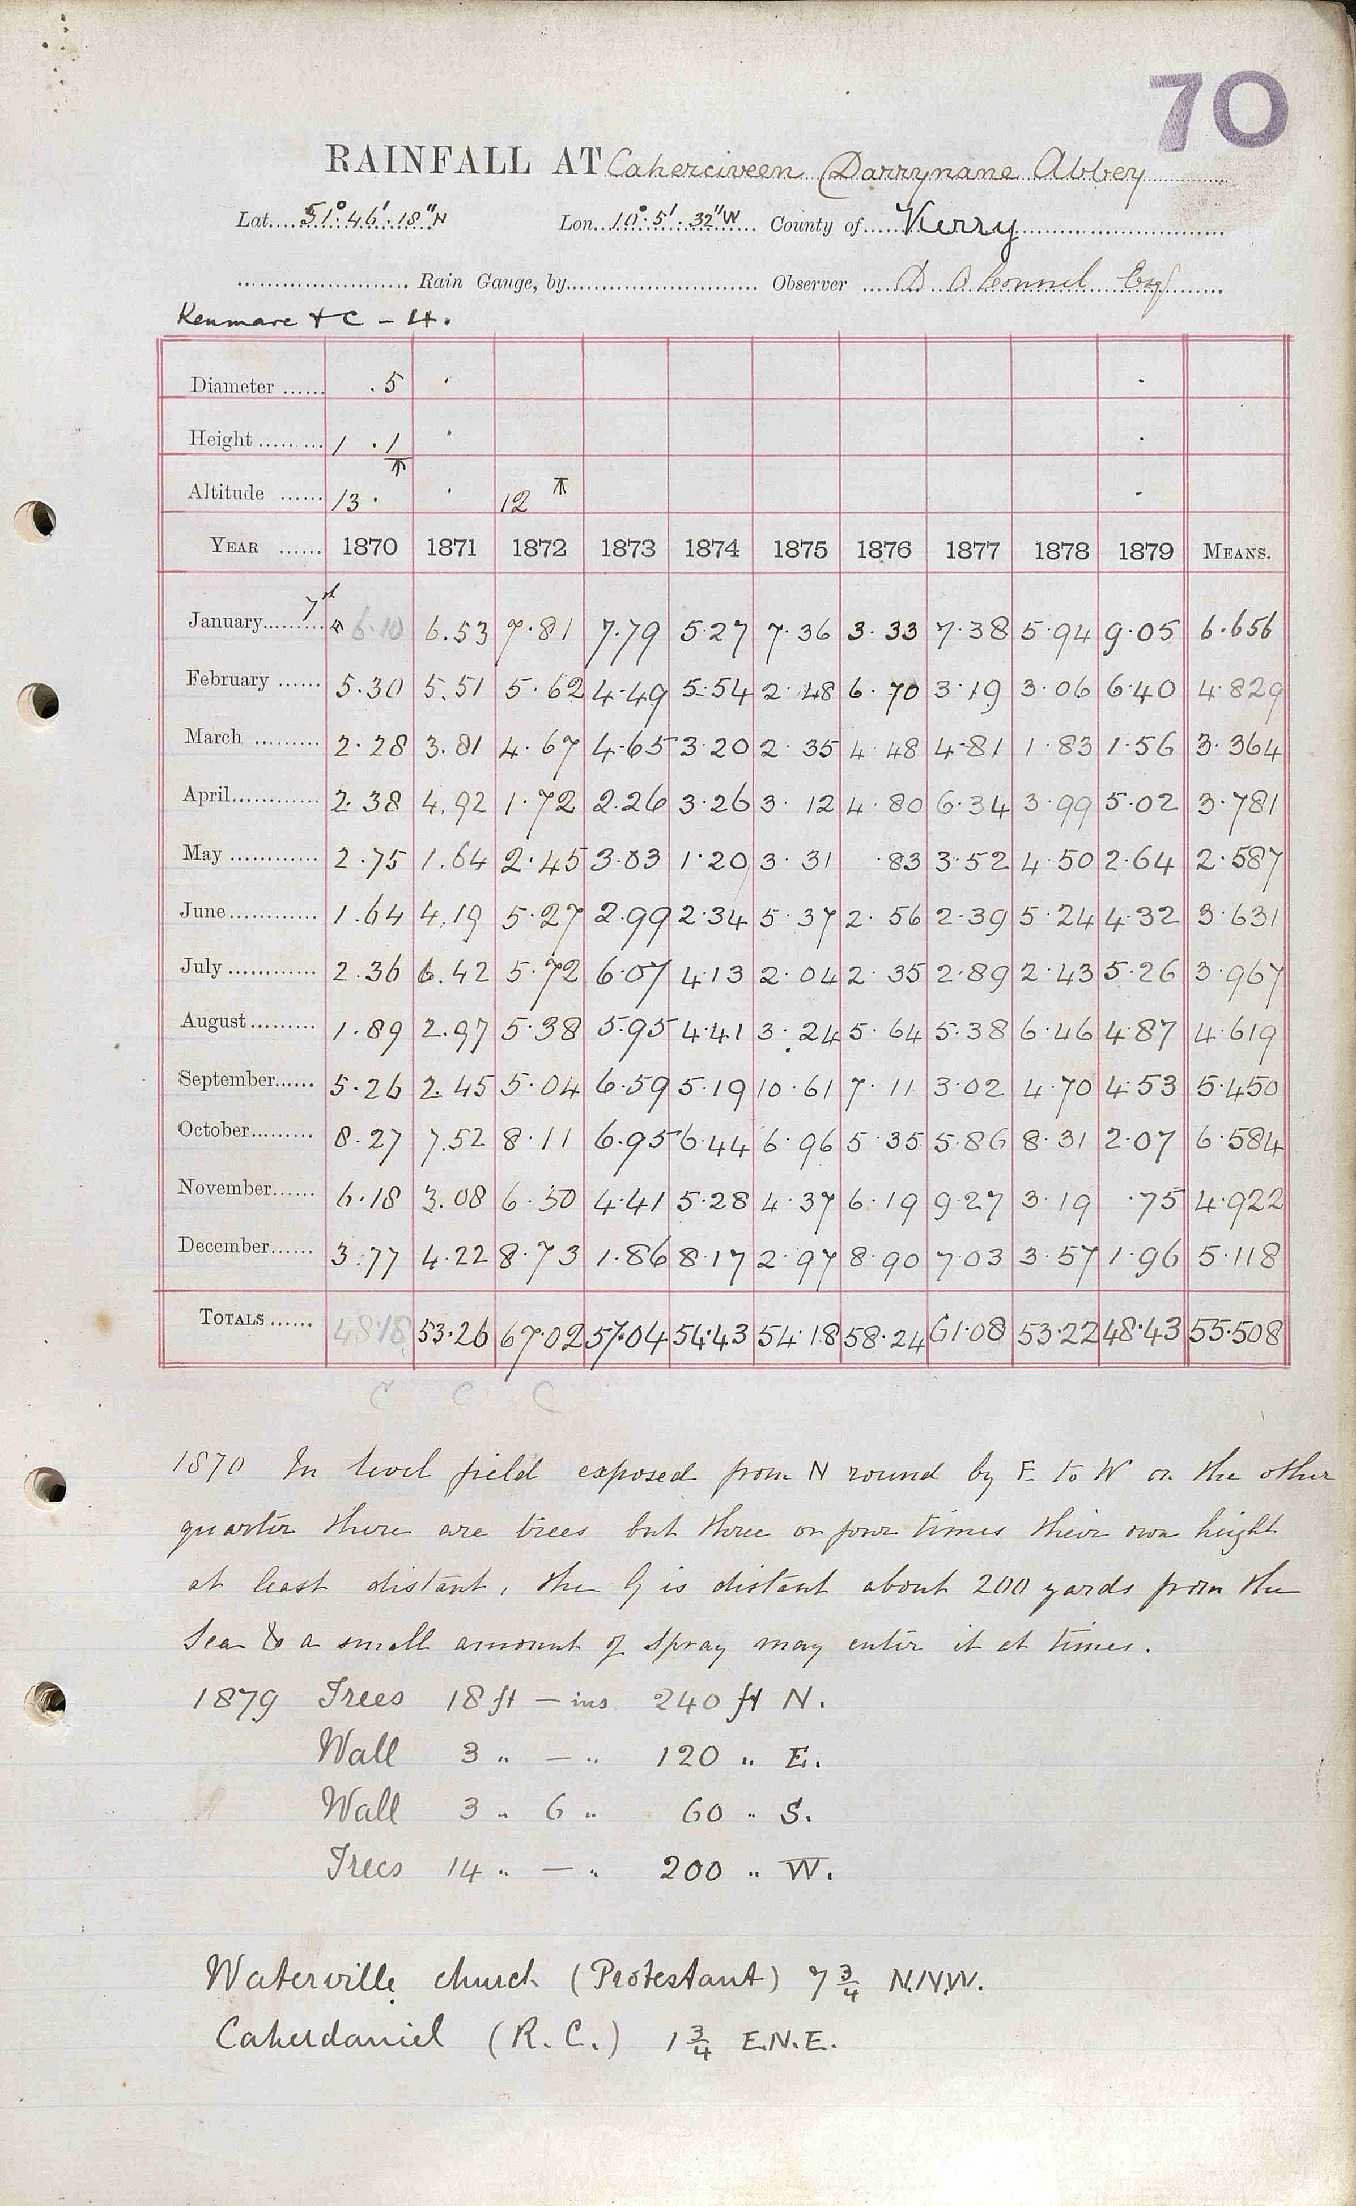 70
RAINFALL AT Caherciveen (Darrynane Abbey
Lat. 51°.46'.18"N Lon. 10°.5'.32"W County of Kerry
Rain Gauge, by Observer D O Connel Esq
Kenmare & C - 4.
Diameter ...... .5
Height ......... 1 .1
Altitude ...... 13 . 12
YEAR ...... 1870 1871 1872 1873 1874 1875 1876 1877 1878 1879 MEANS.
January 7th 6.10 6.53 7.81 7.79 5.27 7.36 3.33 7.38 5.94 9.05 6.656
February ...... 5.30 5.51 5.62 4.49 5.54 2.48 6.70 3.19 3.06 6.40 4.829
March ......... 2.28 3.81 4.67 4.65 3.20 2.35 4.48 4.81 1.83 1.56 3.364
April............ 2.38 4.92 1.72 2.26 3.26 3.12 4.80 6.34 3.99 5.02 3.781
May ............ 2.75 1.64 2.45 3.03 1.20 3.31 .83 3.52 4.50 2.64 2.587
June............ 1.64 4.19 5.27 2.99 2.34 5.37 2.56 2.39 5.24 4.32 3.631
July ............ 2.36 6.42 5.72 6.07 4.13 2.04 2.35 2.89 2.43 5.26 3.967
August......... 1.89 2.97 5.38 5.95 4.41 3.24 5.64 5.38 6.46 4.87 4.619
September...... 5.26 2.45 5.04 6.59 5.19 10.61 7.11 3.02 4.70 4.53 5.450
October......... 8.27 7.52 8.11 6.95 6.44 6.96 5.35 5.86 8.31 2.07 6.584
November...... 6.18 3.08 6.50 4.41 5.28 4.37 6.19 9.27 3.19 .75 4.922
December...... 3.77 4.22 8.73 1.86 8.17 2.97 8.90 7.03 3.57 1.96 5.118
TOTALS ...... 48.18 53.26 67.02 57.04 54.43 54.18 58.24 61.08 53.22 48.43 55.508
C C C
1870 In level field exposed from N round by E to W on the other
quarter there are trees but three or four times their own height
at least distant, the G is distant about 200 yards from the
Sea & a small amount of spray may enter it at times.
1879 Trees 18 ft — ins 240 ft N.
Wall 3 " — " 120 " E.
Wall 3 " 6 " 60 " S.
Trees 14 " — " 200 " W.
Waterville church (Protestant) 7 3/4 N.N.W.
Caherdaniel (R.C.) 1 3/4 E.N.E.